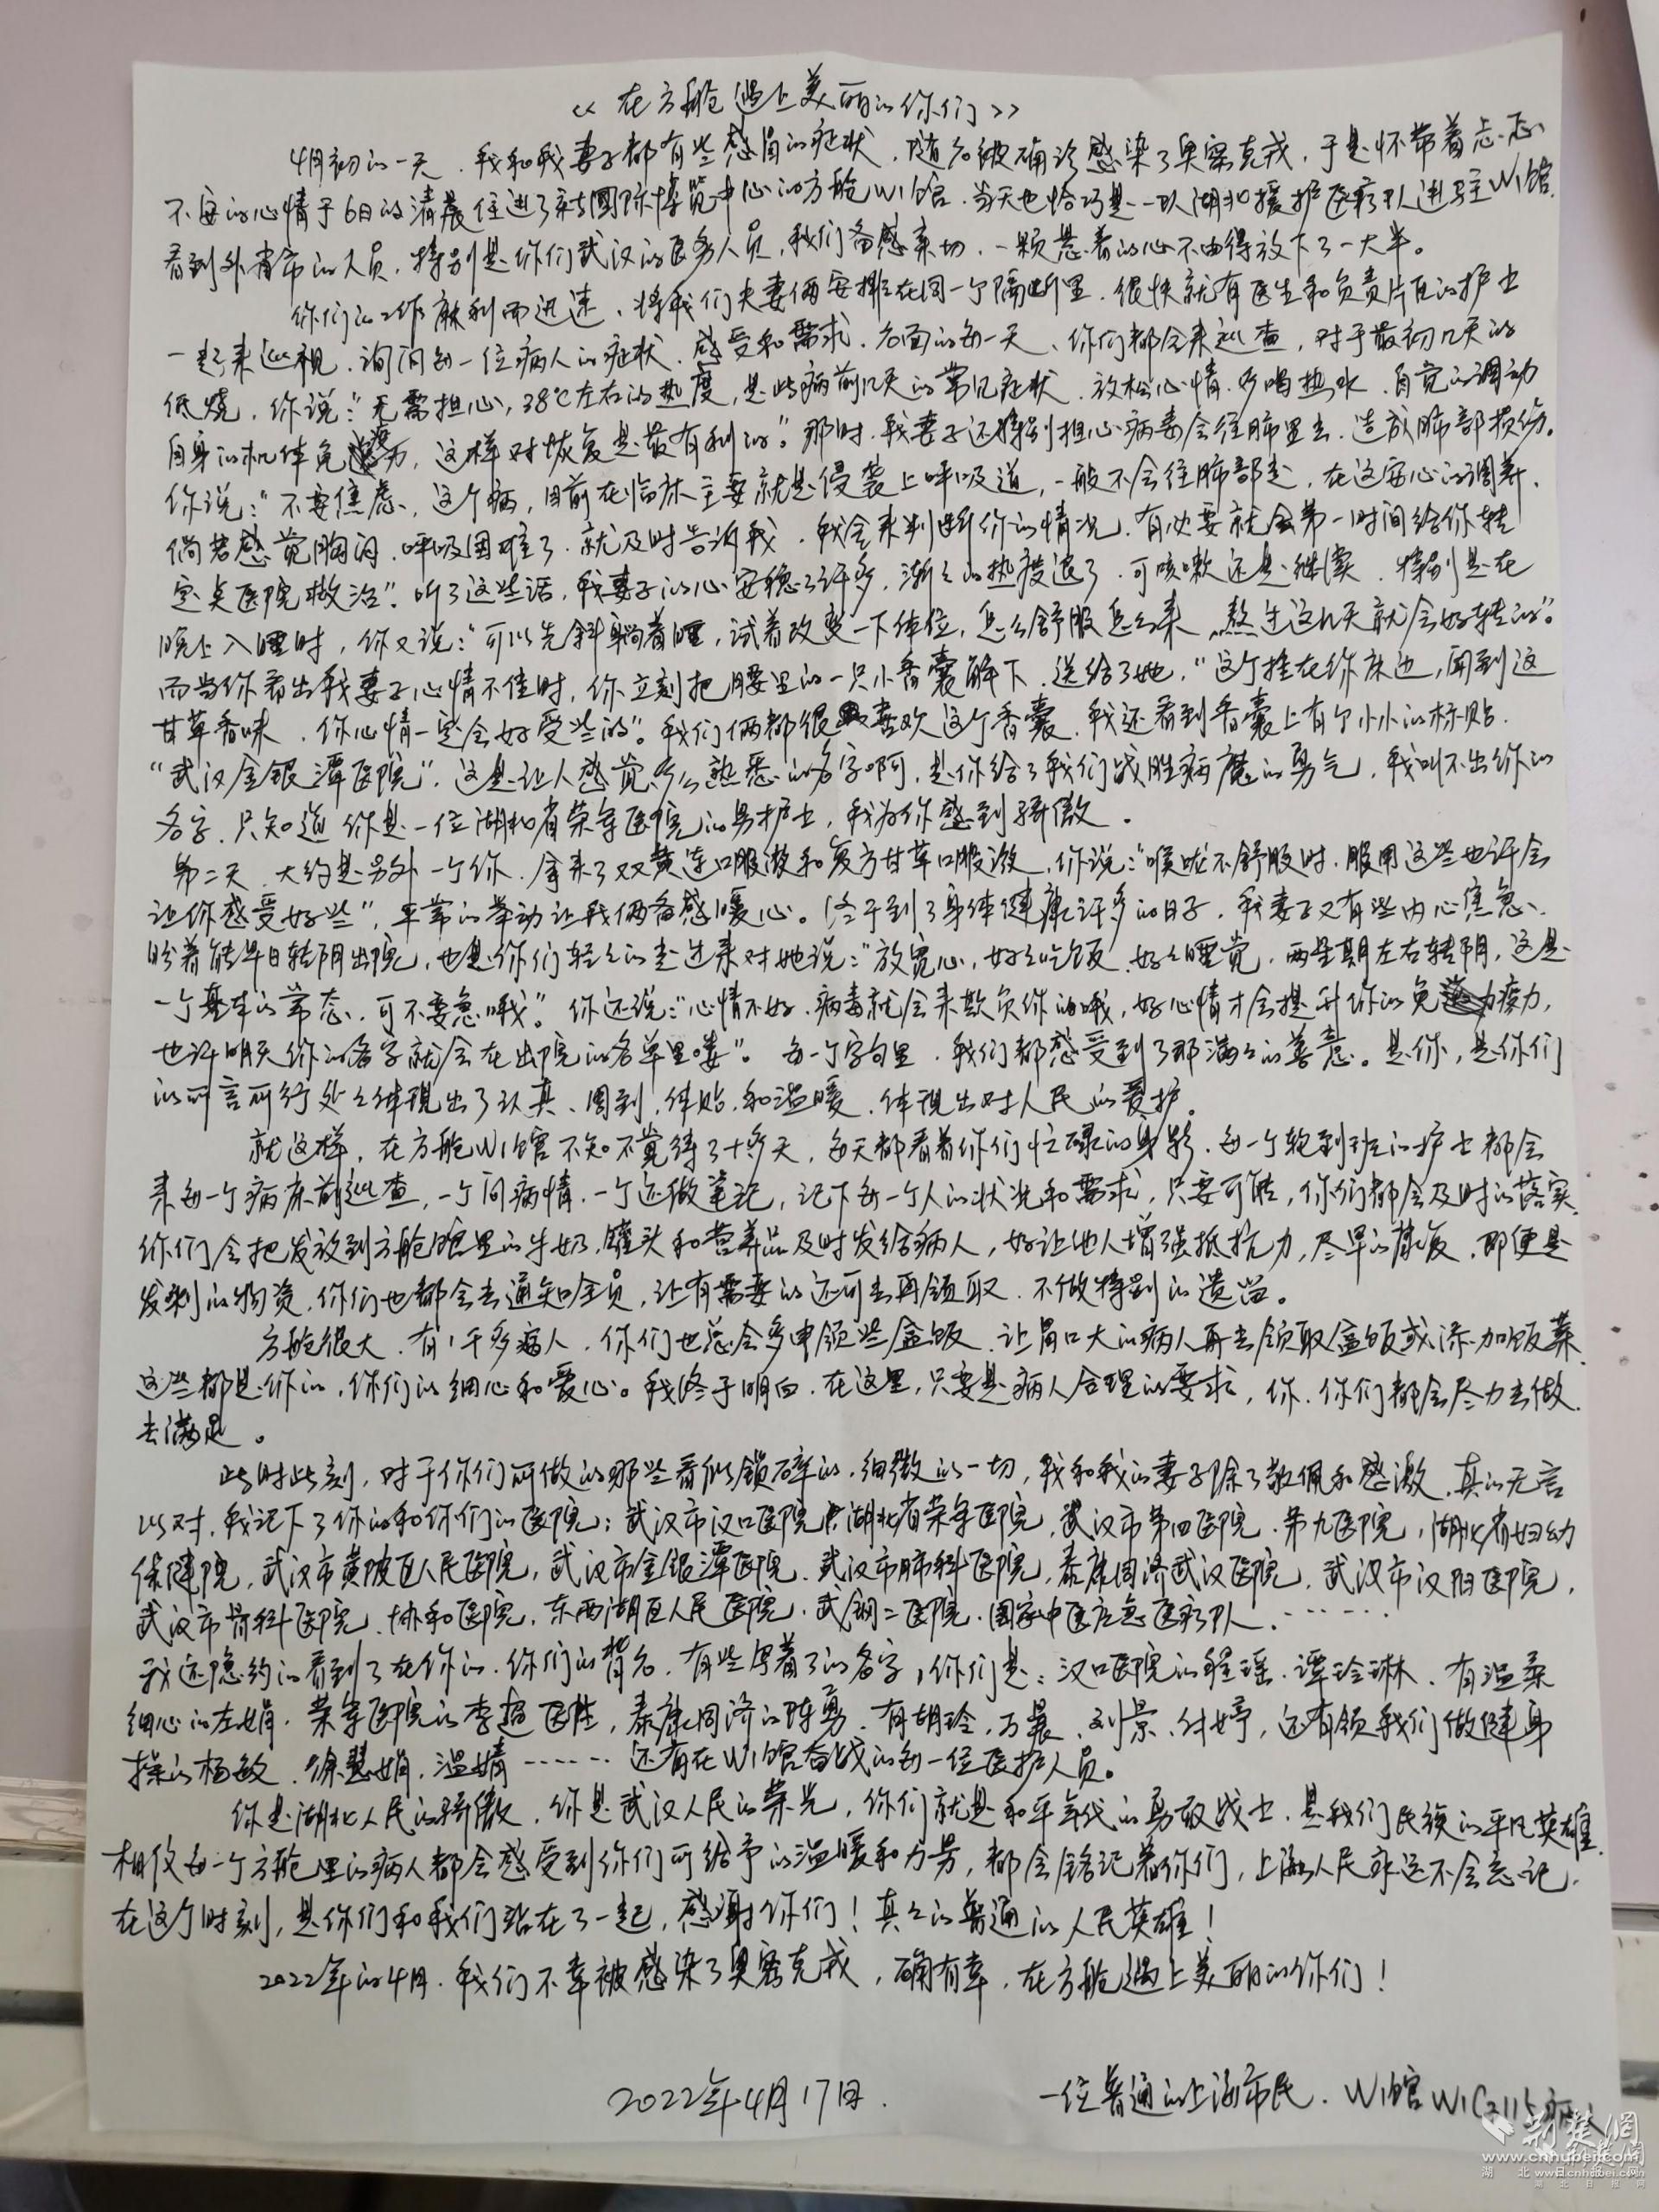 《在方舱遇上美丽的你们》
4月初的一天，我和我妻子都有些感冒的症状，随后被确诊感染了奥密克戎，于是怀带着忐忑
不安的心情于6日的清晨住进了新国际博览中心的方舱W1馆，当天也恰巧是一队湖北援沪医疗队进驻W1馆，
看到外省市的人员，特别是你们武汉的医务人员，我们备感亲切，一颗悬着的心不由得放下了一大半。
你们的工作麻利而迅速，将我们夫妻俩安排在同一个隔断里，很快就有医生和负责片区的护士
一起来巡视，询问每一位病人的症状、感受和需求，后面的每一天，你们都会来巡查，对于最初几天的
低烧，你说："无需担心，38℃左右的热度，是此病前几天的常见症状，放松心情，多喝热水，自觉的调动
自身的机体免疫力，这样对恢复是最有利的。"那时，我妻子还特别担心病毒会往肺里去，造成肺部损伤。
你说："不要焦虑，这个病，目前在临床主要就是侵袭上呼吸道，一般不会往肺部走，在这安心的调养，
倘若感觉胸闷、呼吸困难了，就及时告诉我，我会来判断你的情况，有必要就会第一时间给你转
定点医院救治"。听了这些话，我妻子的心安稳了许多，渐渐的热度退了，可咳嗽还是继续，特别是在
晚上入睡时，你又说："可以先斜躺着睡，试着改变一下体位，怎么舒服怎么来，熬过这几天就会好转的"。
而当你看出我妻子心情不佳时，你立刻把腰里的一只小香囊解下，送给了她，"这个挂在你床边，闻到这
甘草香味，你心情一定会好受些的"。我们俩都很喜欢这个香囊，我还看到香囊上有个小小的标贴，
"武汉金银潭医院"，这是让人感觉多么熟悉的名字啊，是你给了我们战胜病魔的勇气，我叫不出你的
名字，只知道你是一位湖北省荣军医院的男护士，我为你感到骄傲。
第二天，大约是另外一个你，拿来了双黄连口服液和复方甘草口服液，你说："喉咙不舒服时，服用这些也许会
让你感受好些"，平常的举动让我俩备感暖心。终于到了身体健康许多的日子，我妻子又有些内心焦急，
盼着能早日转阴出院，也是你们轻轻的走过来对她说："放宽心，好好吃饭，好好睡觉，两星期左右转阴，这是
一个基本的常态，可不要急哦"。你还说："心情不好，病毒就会来欺负你的哦，好心情才会提升你的免疫力，
也许明天你的名字就会在出院的名单里喽"。每一个字句里，我们都感受到了那满满的善意。是你，是你们
的所言所行处处体现出了认真、周到、体贴、和温暖，体现出对人民的爱护。
就这样，在方舱W1馆不知不觉待了十多天，每天都看着你们忙碌的身影，每一个轮到班的护士都会
来每一个病床前巡查，一个问病情，一个还做笔记，记下每一个人的状况和需求，只要可能，你们都会及时的落实，
你们会把发放到方舱馆里的牛奶，罐头和营养品及时发给病人，好让他人增强抵抗力，尽早的康复，即便是
发剩的物资，你们也都会去通知全员，让有需要的还可去再领取，不做特别的遗留。
方舱很大，有1千多病人，你们也总会多申领些盒饭，让胃口大的病人再去领取盒饭或添加饭菜，
这些都是你的，你们的细心和爱心。我终于明白，在这里，只要是病人合理的要求，你、你们都会尽力去做，
去满足。
此时此刻，对于你们所做的那些看似锁碎的，细微的一切，我和我的妻子除了敬佩和感激，真的无言
以对，我记下了你的和你们的医院：武汉市汉口医院，湖北省荣军医院，武汉市第四医院，第九医院，湖北省妇幼
保健院，武汉市黄陂区人民医院，武汉市金银潭医院，武汉市肺科医院，泰康同济武汉医院，武汉市汉阳医院，
武汉市骨科医院，协和医院，东西湖区人民医院，武钢二医院，国家中医应急医疗队……
我还隐约的看到了在你的，你们的背后，有些写着了的名字，你们是：汉口医院的程瑶、谭玲琳，有温柔
细心的左娟，荣军医院的李超医胜，泰康同济的陈勇，有胡玲，万晨，刘景，付婷，还有领我们做健身
操的杨敏，徐慧娟，温婧……还有在W1馆奋战的每一位医护人员。
你是湖北人民的骄傲，你是武汉人民的荣光，你们就是和平年代的勇敢战士，是我们民族的平凡英雄，
相信每一个方舱里的病人都会感受到你们所给予的温暖和力量，都会铭记着你们，上海人民永远不会忘记，
在这个时刻，是你们和我们站在了一起，感谢你们！真正的普通的人民英雄！
2022年的4月，我们不幸被感染了奥密克戎，确有幸，在方舱遇上美丽的你们！
2022年4月17日.
一位普通的上海市民，W1馆W1C2115病人
荆楚網
www.cnhubei.com
湖北日报网